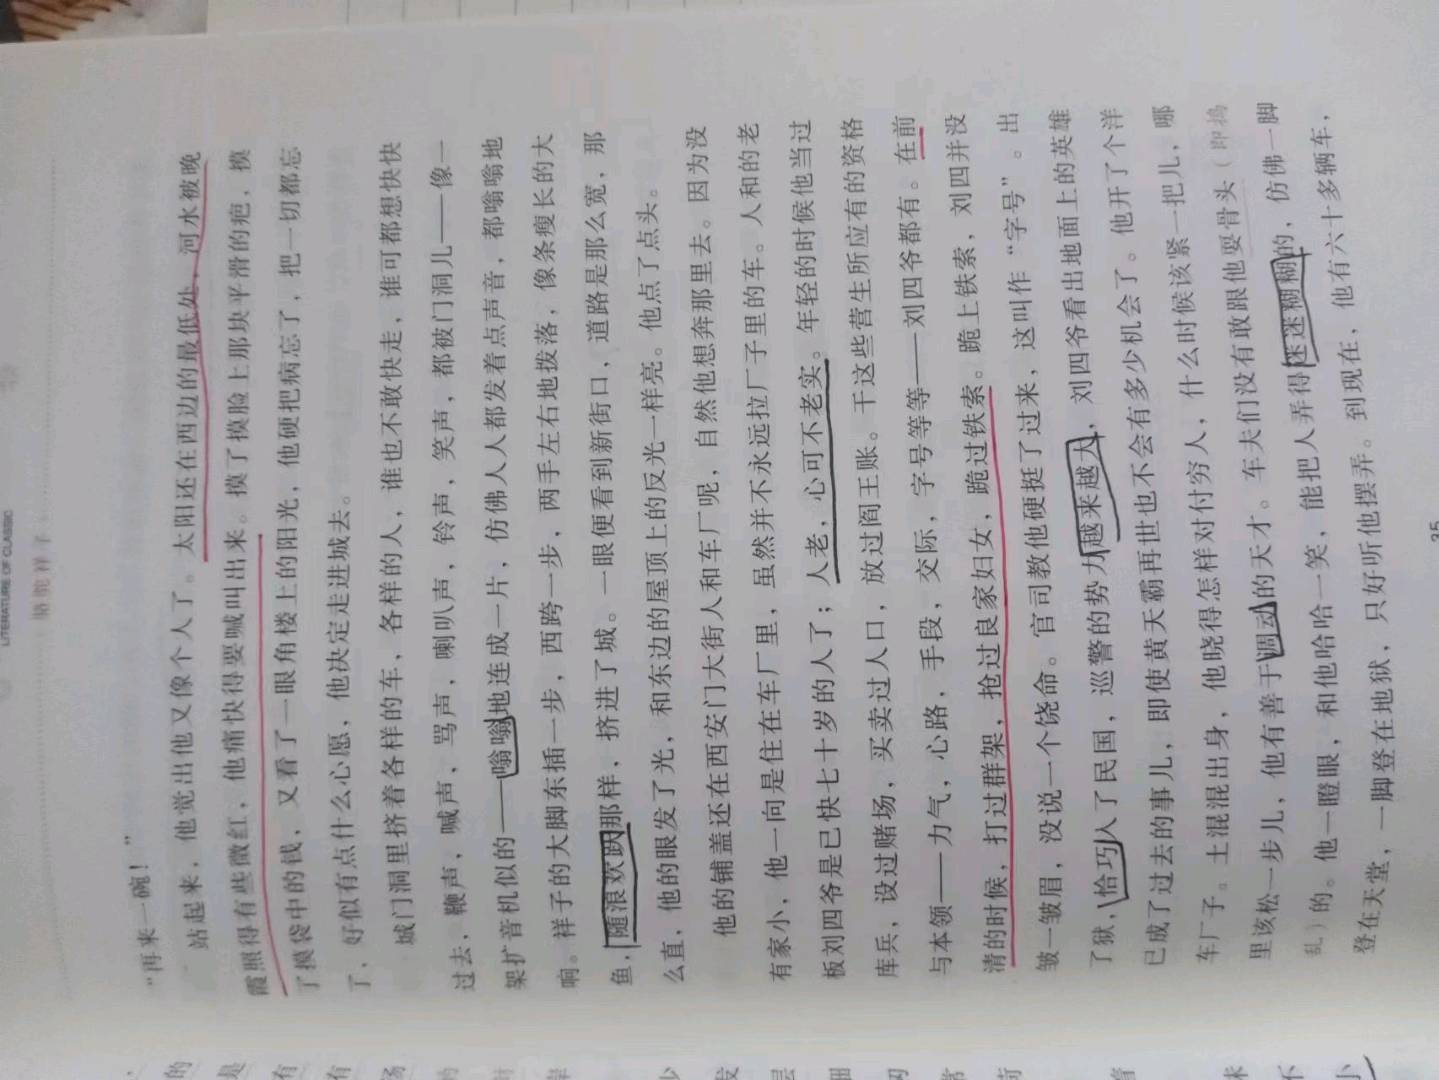 LITERATURE OF CLASSIC
骆驼祥子
“再来一碗！”
站起来，他觉出他又像个人了。太阳还在西边的最低处，河水被晚
霞照得有些微红，他痛快得要喊叫出来。摸了摸脸上那块平滑的疤，摸
了摸袋中的钱，又看了一眼角楼上的阳光，他硬把病忘了，把一切都忘
了，好似有点什么心愿，他决定走进城去。
城门洞里挤着各样的车，各样的人，谁也不敢快走，谁可都想快快
过去，鞭声，喊声，骂声，喇叭声，铃声，笑声，都被门洞儿——像一
架扩音机似的——嗡嗡地连成一片，仿佛人人都发着点声音，都嗡嗡地
响。祥子的大脚东插一步，西跨一步，两手左右地拨落，像条瘦长的大
鱼，随浪欢跃那样，挤进了城。一眼便看到新街口，道路是那么宽，那
么直，他的眼发了光，和东边的屋顶上的反光一样亮。他点了点头。
他的铺盖还在西安门大街人和车厂呢，自然他想奔那里去。因为没
有家小，他一向是住在车厂里，虽然并不永远拉厂子里的车。人和的老
板刘四爷是已快七十岁的人了；人老，心可不老实。年轻的时候他当过
库兵，设过赌场，买卖过人口，放过阎王账。干这些营生所应有的资格
与本领——力气，心路，手段，交际，字号等等——刘四爷都有。在前
清的时候，打过群架，抢过良家妇女，跪过铁索。跪上铁索，刘四并没
皱一皱眉，没说一个饶命。官司教他硬挺了过来，这叫作“字号”。出
了狱，恰巧入了民国，巡警的势力越来越大，刘四爷看出地面上的英雄
已成了过去的事儿，即使黄天霸再世也不会有多少机会了。他开了个洋
车厂子。土混混出身，他晓得怎样对付穷人，什么时候该紧一把儿，哪
里该松一步儿，他有善于调动的天才。车夫们没有敢跟他耍骨头（即捣
乱）的。他一瞪眼，和他哈哈一笑，能把人弄得迷迷糊糊的，仿佛一脚
登在天堂，一脚登在地狱，只好听他摆弄。到现在，他有六十多辆车，
35